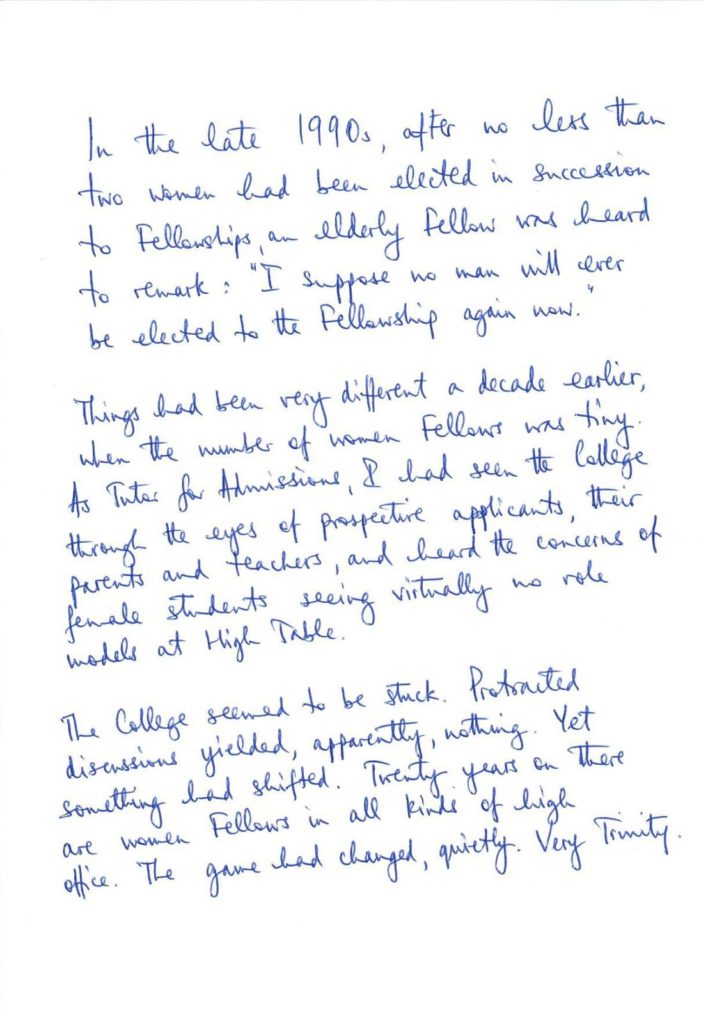 In the late 1990s, after no less than
two women had been elected in succession
to Fellowships, an elderly Fellow was heard
to remark: "I suppose no man will ever
be elected to the Fellowship again now."
Things had been very different a decade earlier,
when the number of women Fellows was tiny.
As Tutor for Admissions, I had seen the College
through the eyes of prospective applicants, their
parents and teachers, and heard the concerns of
female students seeing virtually no role
models at High Table.
The College seemed to be stuck. Protracted
discussions yielded, apparently, nothing. Yet
something had shifted. Twenty years on there
are women Fellows in all kinds of high
office. The game had changed, quietly. Very Trinity.